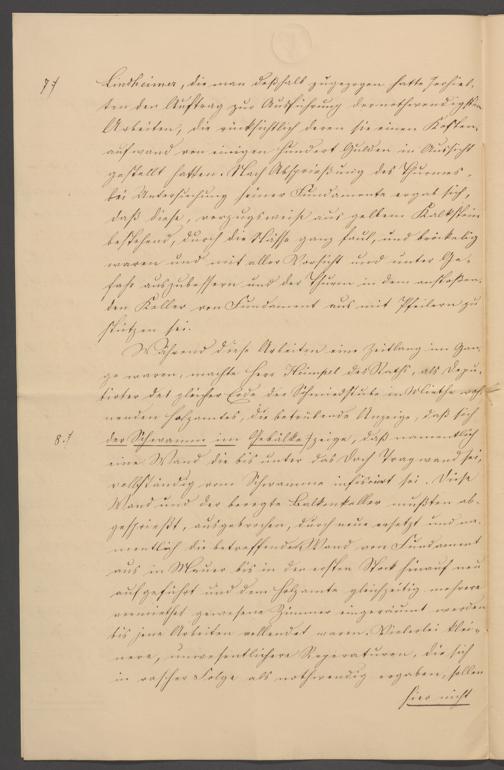 7.) Lindheimer, die man deßhalb zugezogen hatte erhiel-
ten den Auftrag zur Ausführung der nothwendigsten
Arbeiten, die rücksichtlich deren sie einen Kosten-
aufwand von einigen hundert Gulden in Aussicht
gestellt hatten. Nach Absprießung des Thurmes,
bei Untersuchung seiner Fundamente ergab sich,
daß diese, vorzugsweise aus gelbem Kalkstein
bestehend, durch die Nässe ganz faul, und bröckelig
waren und mit aller Vorsicht und unter Ge-
fahr auszubessern und der Thurm in dem anstoßen-
den Keller von Fundament aus mit Pfeilern zu
stützen sei.
Während diese Arbeiten eine Zeitlang im Gan-
ge waren, machte Herr des Raths, als Depu-
tirter das gleicher Erde der Schmiedstube woh-
nenden Holzamtes, die betrübende Anzeige, daß sich
8.) der Schwamm im Gebälke zeige, daß namentlich
eine Wand die bis unter das Dach Tragwand sei,
vollständig vom Schwamme inficirt sei. Diese
Wand und der besagte Balkenkeller mußten ab-
gesprießt, ausgebrochen, durch neue ersetzt und na-
mentlich die betreffende Wand von Fundament
aus in Mauer bis in den ersten Stock hinauf neu
aufgeführt und dem Holzamte gleichzeitig mehrere
vermiethet gewesene Zimmer eingeräumt werden
bis jene Arbeiten vollendet waren. Vielerlei klei-
nere, unwesentlichere Reparaturen, die sich
in rascher Folge als nothwendig ergaben, sollen
hier nicht